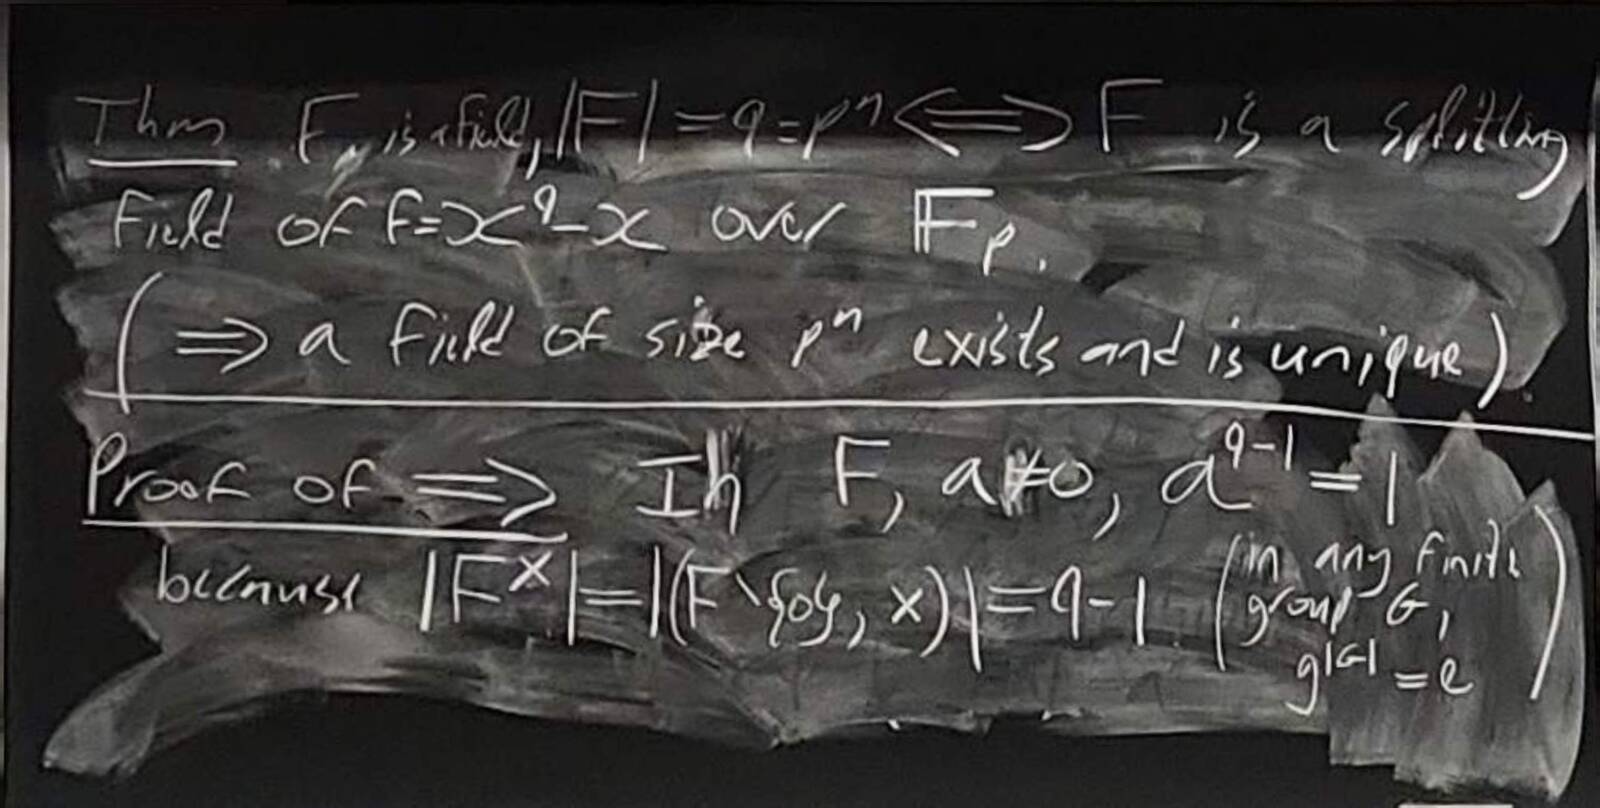 Thm F is a field, |F| = q = pⁿ ⟺ F is a splitting
field of f = x^q - x over 𝔽_p.
(⟹ a field of size pⁿ exists and is unique).
Proof of ⟹ In F, a ≠ 0, a^{q-1} = 1
because |F^×| = |(F \ {0}, ×)| = q - 1 (in any finite
group G,
g^{|G|} = e)